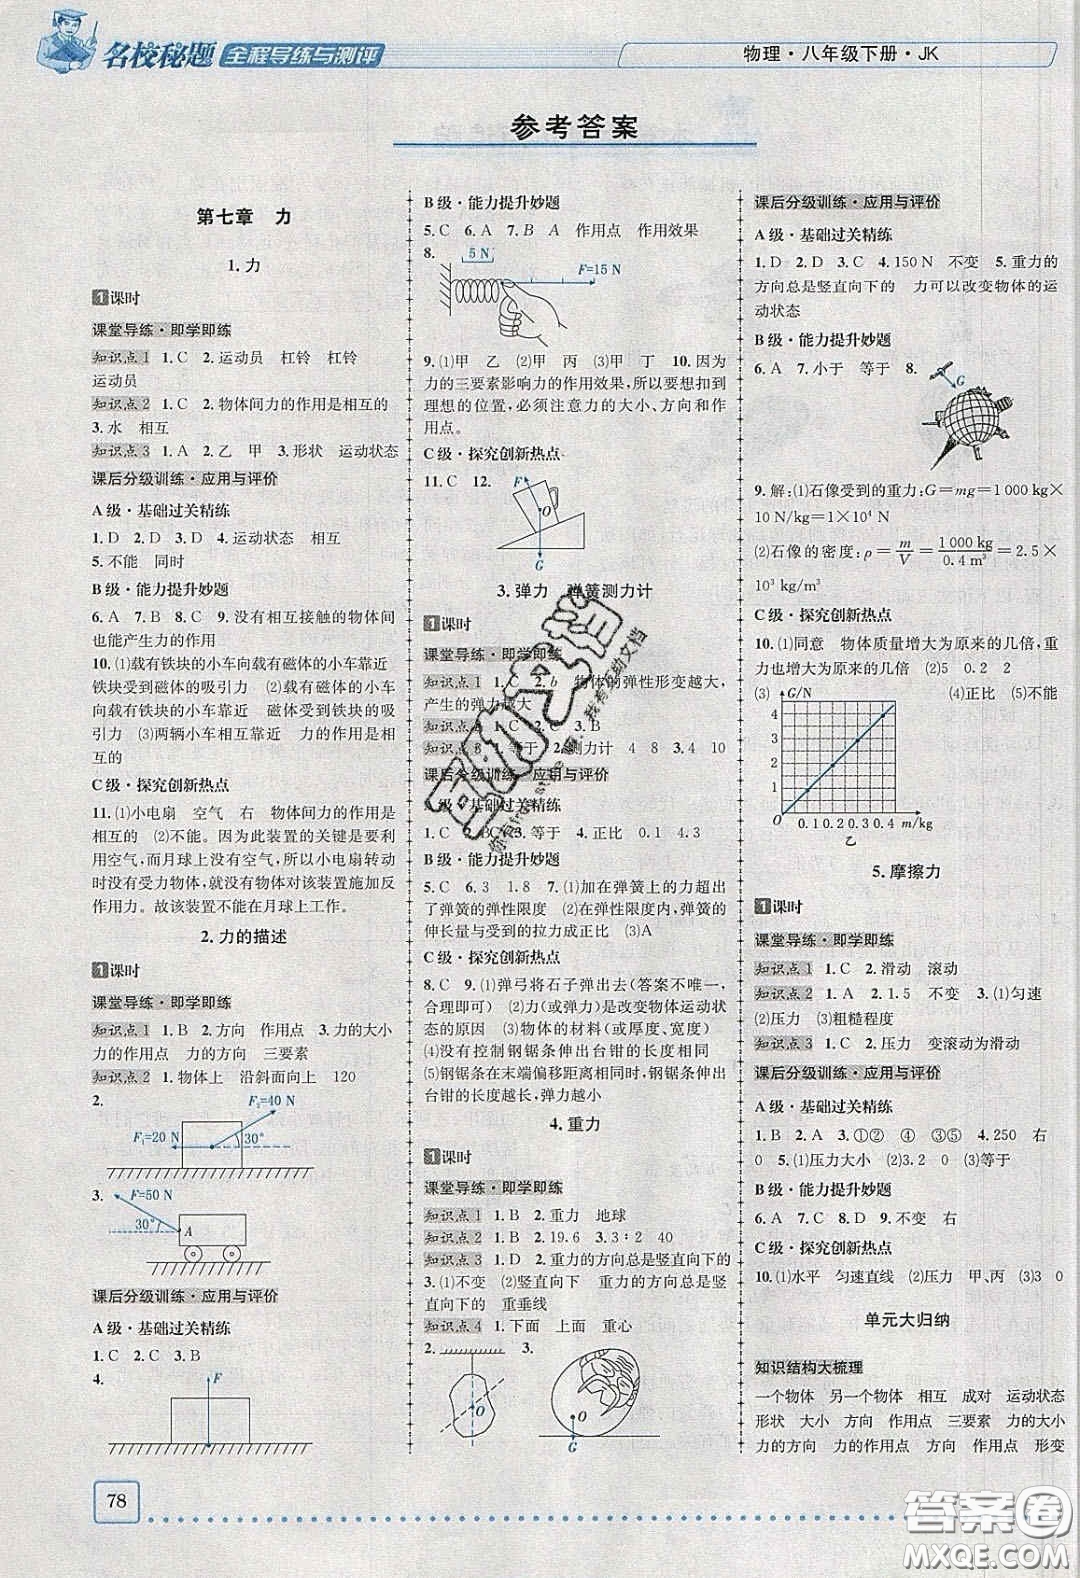 名校秘题 全程导练与测评
物理·八年级下册·JK
参考答案
第七章 力
1.力
1课时
课堂导练·即学即练
知识点1 1.C 2.运动员 杠铃 杠铃
运动员
知识点2 1.C 2.物体间力的作用是相互的
3.水 相互
知识点3 1.A 2.乙 甲 3.形状 运动状态
课后分级训练·应用与评价
A级·基础过关精练
1.D 2.D 3.D 4.运动状态 相互
5.不能 同时
B级·能力提升妙题
6.A 7.B 8.C 9.没有相互接触的物体间
也能产生力的作用
10.(1)载有铁块的小车向载有磁体的小车靠近
铁块受到磁体的吸引力 (2)载有磁体的小车
向载有铁块的小车靠近 磁体受到铁块的吸
引力 (3)两辆小车靠近 力的作用是相
互的
C级·探究创新热点
11.(1)小电扇 空气 右 物体间力的作用是
相互的 (2)不能。因为此装置的关键是要利
用空气,而月球上没有空气,所以小电扇转动
时没有受力物体,就没有物体对该装置施加作
用力。故该装置不能在月球上工作。
2.力的描述
1课时
课堂导练·即学即练
知识点1 1.B 2.方向 作用点 3.力的大小
力的作用点 力的方向 三要素
知识点2 1.物体上 沿斜面向上 120
2.
F₂=40 N
F₁=20 N
30°
3.
F=50 N
30°
A
课后分级训练·应用与评价
A级·基础过关精练
1.C 2.C 3.B
4.
F
B级·能力提升妙题
5.C 6.A 7.B A 作用点 作用效果
8.
5 N
F=15 N
9.(1)甲 乙 (2)甲 丙 (3)甲 丁 10.因为
力的三要素影响力的作用效果,所以要想扣到
理想的位置,必须注意力的大小、方向和作
用点。
C级·探究创新热点
11.C 12.
F
O
G
3.弹力 弹簧测力计
1课时
课堂导练·即学即练
知识点1 1.C 2.b 物体的弹性形变越大,
产生的弹力越大
1.C 2.C 3.B
1.等于 2.测力计 4 8 3.4 10
课后分级训练·应用与评价
A级·基础过关精练
1.C 2.BC 3.等于 4.正比 0.1 4.3
B级·能力提升妙题
5.C 6.3 1.8 7.(1)加在弹簧上的力超出
了弹簧的弹性限度 (2)在弹性限度内,弹簧的
伸长量与受到的拉力成正比 (3)A
C级·探究创新热点
8.C 9.(1)弹弓将石子弹出去(答案不唯一,
合理即可) (2)力(或弹力)是改变物体运动状
态的原因 (3)物体的材料(或厚度、宽度)
(4)没有控制钢锯条伸出台钳的长度相同
(5)钢锯条在末端偏移距离相同时,钢锯条伸出台钳
的长度越长,弹力越小
4.重力
1课时
课堂导练·即学即练
知识点1 1.B 2.重力 地球
知识点2 1.B 2.19.6 3.3∶2 40
知识点3 1.D 2.重力的方向总是竖直向下的
3.(1)不变 (2)竖直向下 重力的方向总是竖
直向下的 重垂线
知识点4 1.下面 上面 重心
2.
O
3.
O
G
课后分级训练·应用与评价
A级·基础过关精练
1.D 2.D 3.C 4.150 N 不变 5.重力的
方向总是竖直向下的 力可以改变物体的运
动状态
B级·能力提升妙题
6.A 7.小于 等于 8.
G
9.解:(1)石像受到的重力:G=mg=1 000 kg×
10 N/kg=1×10⁴ N
(2)石像的密度:ρ=m/V=1 000 kg/0.4 m³=2.5×
10³ kg/m³
C级·探究创新热点
10.(1)同意 物体质量增大为原来的几倍,重
力也增大为原来的几倍 (2)5 0.2 2
(3)
G/N
4
3
2
1
O
0.1 0.2 0.3 0.4 m/kg
乙
(4)正比 (5)不能
5.摩擦力
1课时
课堂导练·即学即练
知识点1 1.C 2.滑动 滚动
知识点2 1.A 2.1.5 不变 3.(1)匀速
(2)压力 (3)粗糙程度
知识点3 1.C 2.压力 变滚动为滑动
课后分级训练·应用与评价
A级·基础过关精练
1.B 2.A 3.①② ④ ③⑤ 4.250 右
0 5.(1)压力大小 (2)3.2 0 (3)等于
B级·能力提升妙题
6.A 7.C 8.D 9.不变 右
C级·探究创新热点
10.(1)水平 匀速直线 (2)压力 甲、丙 (3)3 0
单元大归纳
知识结构大梳理
一个物体 另一个物体 相互 成对 运动状态
形状 大小 方向 作用点 三要素 力的大小
力的方向 力的作用点 方向 作用点 形变
78
答案圈
MXQE.COM